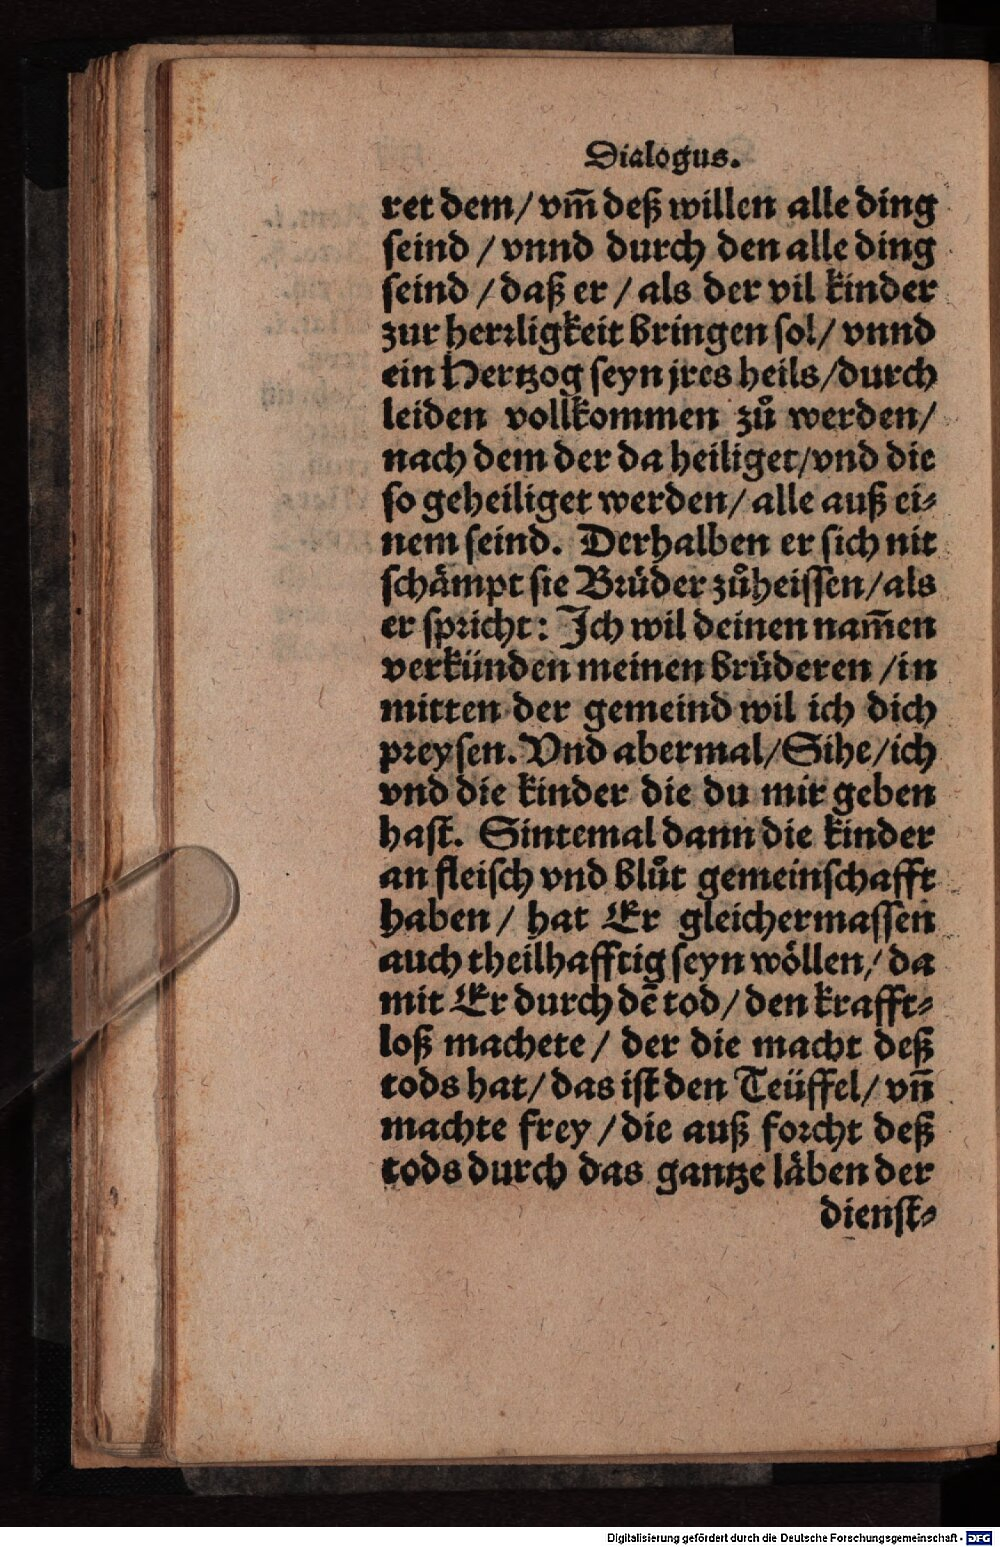 Dialogus.
ret dem/ vm̃ deß willen alle ding
seind / vnnd durch den alle ding
seind / daß er / als der vil kinder
zur herꝛligkeit bringen sol/ vnnd
ein Hertzog seyn jres heils/durch
leiden vollkommen zů werden/
nach dem der da heiliget/vnd die
so geheiliget werden/ alle auß ei⸗
nem seind. Derhalben er sich nit
schämpt sie Brüder zůheissen/als
er spꝛicht: Ich wil deinen nam̃en
verkünden meinen brüderen /in
mitten der gemeind wil ich dich
pꝛeysen. Vnd abermal/Sihe/ich
vnd die kinder die du mir geben
hast. Sintemal dann die kinder
an fleisch vnd blůt gemeinschafft
haben / hat Er gleichermassen
auch theilhafftig seyn wöllen/ da
mit Er durch dẽ tod/ den krafft⸗
loß machete / der die macht deß
tods hat/ das ist den Teüffel/ vñ
machte frey /die auß foꝛcht deß
tods durch das gantze läben der
dienst⸗
Digitalisierung gefördert durch die Deutsche Forschungsgemeinschaft - DFG